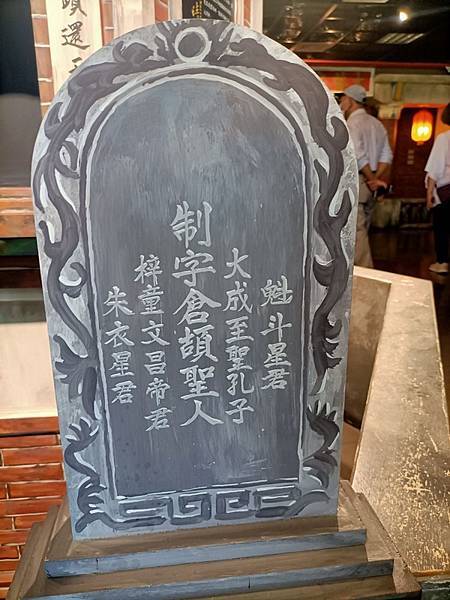 魁斗星君
大成至聖孔子
制字倉頡聖人
梓童文昌帝君
朱衣星君